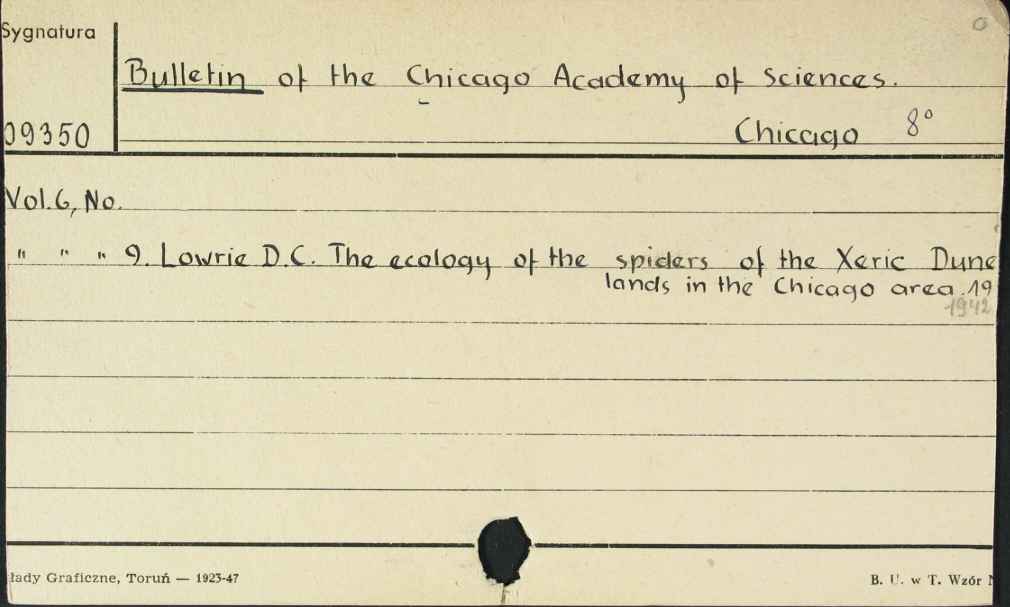 Sygnatura
Bulletin of the Chicago Academy of Sciences.
09350
Chicago 8°
Vol.6, No.
" " " 9. Lowrie D.C. The ecology of the spiders of the Xeric Dune
lands in the Chicago area.19
1942
łady Graficzne, Toruń — 1923-47
B. U. w T. Wzór